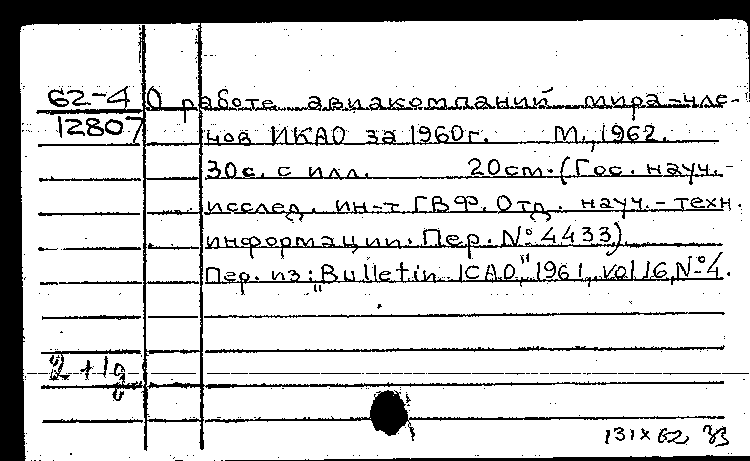 62-4 О работе авиакомпаний мира-чле-
12807 нов ИКАО за 1960г. М., 1962.
30с. с илл. 20cm. (Гос. науч.-
исслед. ин-т ГВФ. Отд. науч.-техн.
информации. Пер. № 4433)
Пер. из: „Bulletin ICAO," 1961, vol 16, № 4.
2 + 1g
131 x 62